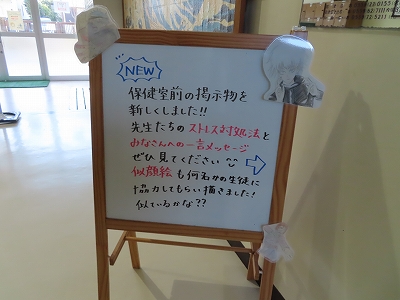 NEW
保健室前の掲示物を
新しくしました!!
先生たちのストレス対処法と
みなさんへの一言メッセージ
ぜひ見てください
似顔絵も何名かの生徒に
協力してもらい描きました!
似ているかな??